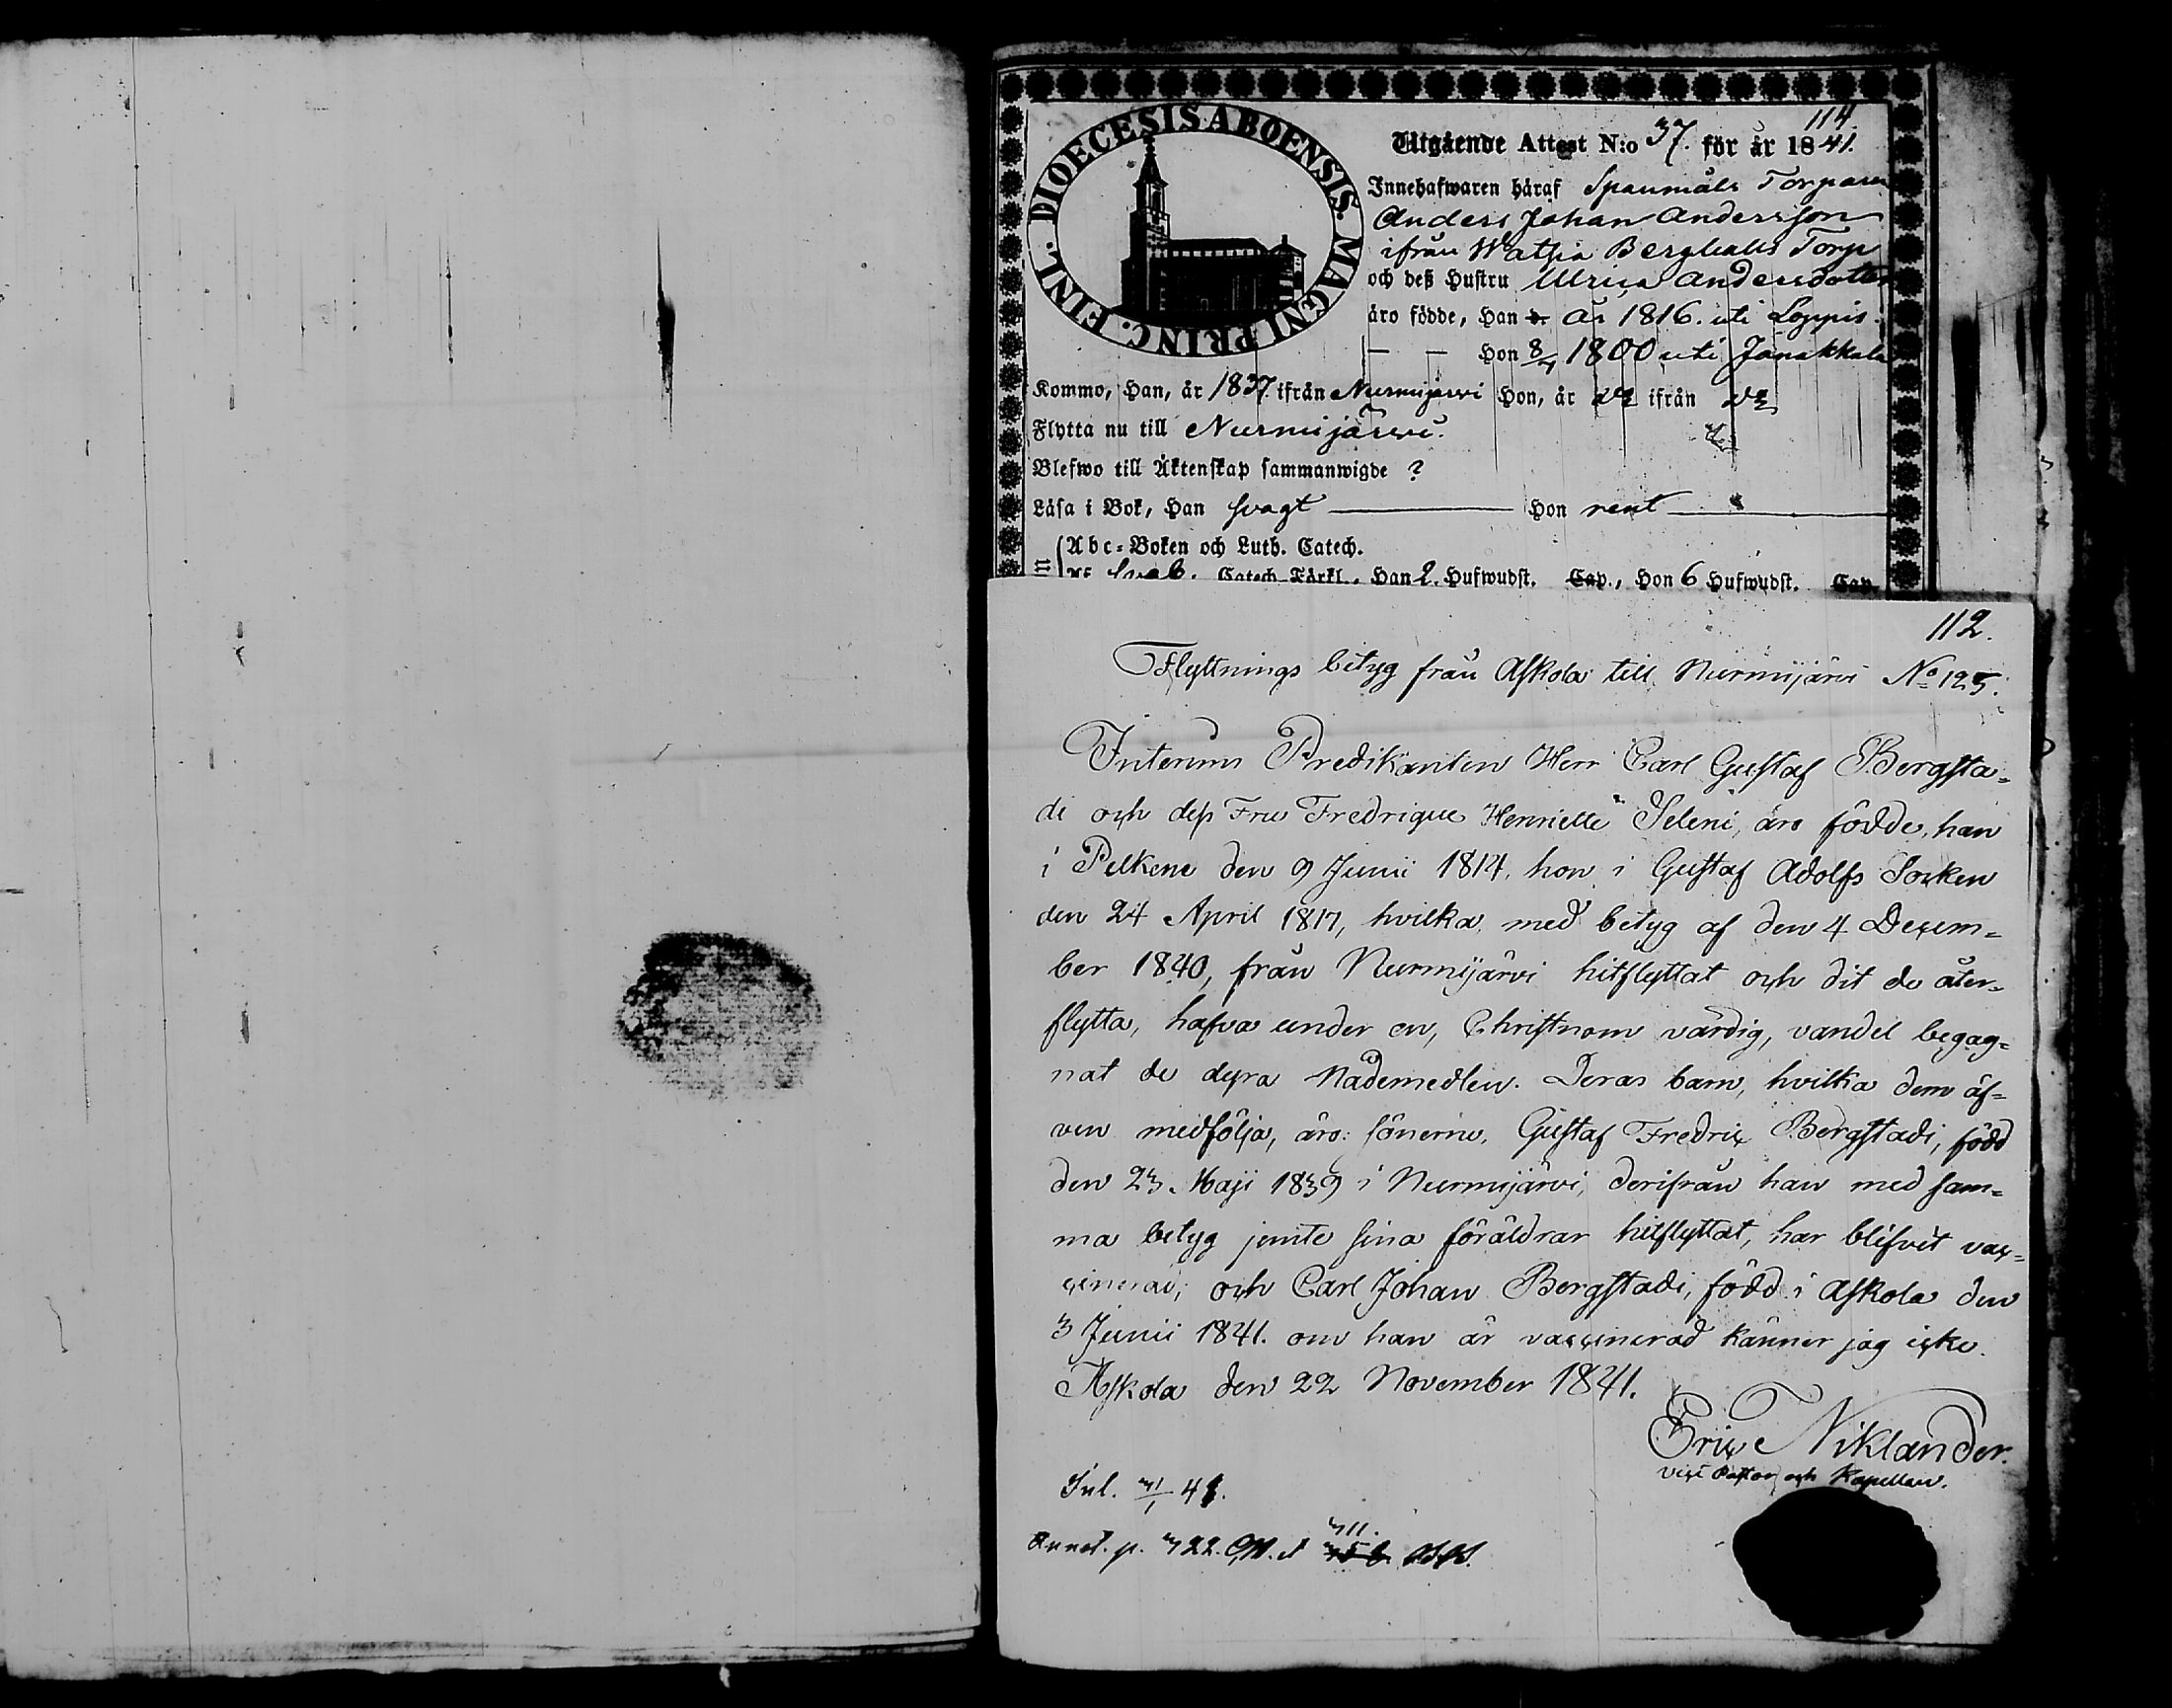 114.
DIOECESIS ABOENSIS. MAGNI PRINC. FINL.
Utgående Attest N:o 37. för år 1841.
Innehafwaren häraf Spanmåls Torparen
Anders Johan Andersson
ifrån Watsia Berghälls Torp
och deß Hustru Ulrica Andersdotter
äro födde, Han d. År 1816. uti Loppis.
— — Hon 8/4 1800 uti Janakkala
Kommo, Han, år 1837. ifrån Nurmijärvi Hon, år ifrån
Flytta nu till Nurmijärvi.
Blefwo till Äktenskap sammanwigde ?
Läsa i Bok, Han svagt — Hon rent —
Abc-Boken och Luth. Catech.
Catech. Förkl., Han 2. Hufwudst. Cap., Hon 6 Hufwudst. Cap.
112.
Flyttnings betyg från Askola till Nurmijärvi No 125.
Interims Predikanten Herr Carl Gustaf Bergsta=
di och dess Fru Fredrique Henriette Seleni, äro födde, han
i Pelkene den 9 Junii 1814, hon i Gustaf Adolfs Socken
den 24 April 1817, hvilka med betyg af den 4 Decem=
ber 1840, från Nurmijärvi hitflyttat och dit de åter=
flytta, hafva under en, Christnom värdig, vandel begag=
nat de dyra Nådemedlen. Deras barn, hvilka dem äf=
ven medfölja, äro: sönerne, Gustaf Fredric Bergstadi, född
den 23. Maji 1839 i Nurmijärvi, derifrån han med sam=
ma betyg jemte sina föräldrar hitflyttat, har blifvit vac=
cinerad; och Carl Johan Bergstadi, född i Askola den
3 Junii 1841. om han är vaccinerad känner jag icke.
Askola den 22 November 1841.
Eric Niklander.
vice Pastor och Kapellan.
Inl. 31/1 42.
311.
Annot. p. 322. C.M. &